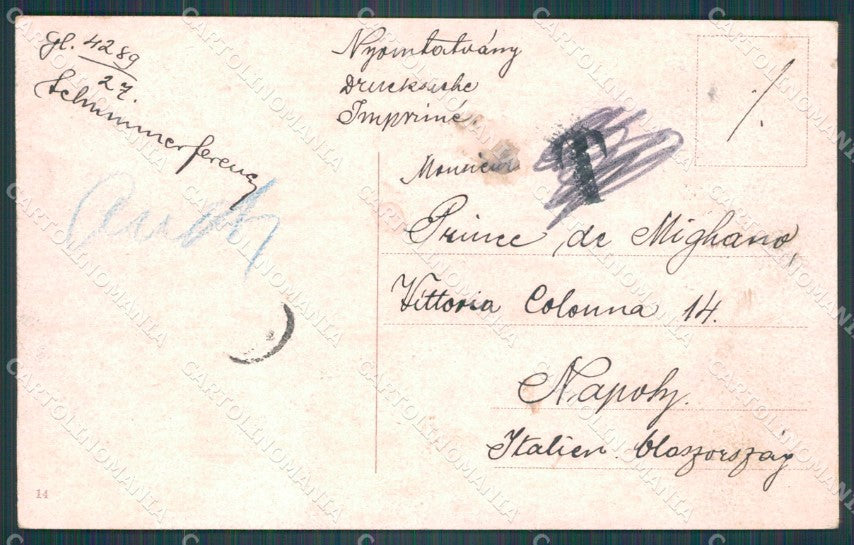 Gl. 4289
27.
Schimmer ferenc
Nyomtatvány
Drucksache
Imprimé
T
Monsieur
Prince de Mighano,
Vittoria Colonna 14.
Napoly.
Italien. Olaszország
14
CARTOLINOMANIA